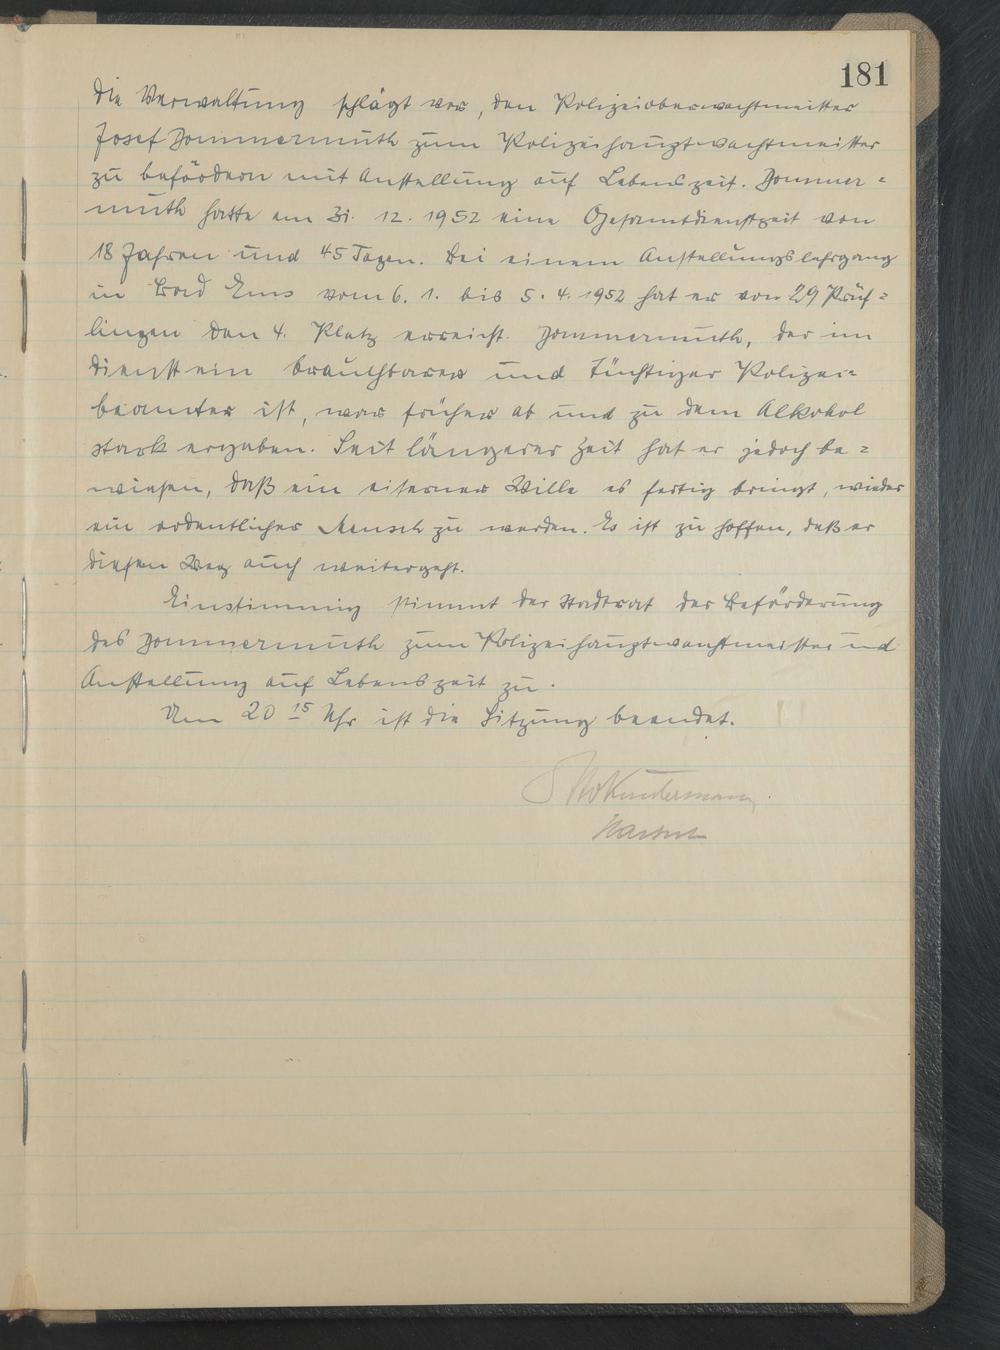 181
Die Verwaltung schlägt vor, den Polizeioberwachtmeister
Josef Dommermuth zum Polizeihauptwachtmeister
zu befördern mit Anstellung auf Lebenszeit. Dommer=
muth hatte am 31. 12. 1952 eine Gesamtdienstzeit von
18 Jahren und 45 Tagen. Bei einem Anstellungslehrgang
in Bad Ems vom 6. 1. bis 5. 4. 1952 hat er von 29 Prüf=
lingen den 4. Platz erreicht. Dommermuth, der im
Dienst ein brauchbarer und tüchtiger Polizei=
beamter ist, war früher ab und zu dem Alkohol
stark ergeben. Seit längerer Zeit hat er jedoch be=
wiesen, daß ein eiserner Wille es fertig bringt, wieder
ein ordentlicher Mensch zu werden. Es ist zu hoffen, daß er
diesen Weg auch weitergeht.
Einstimmig stimmt der Stadtrat der Beförderung
des Dommermuth zum Polizeihauptwachtmeister und
Anstellung auf Lebenszeit zu.
Um 20 15 Uhr ist die Sitzung beendet.